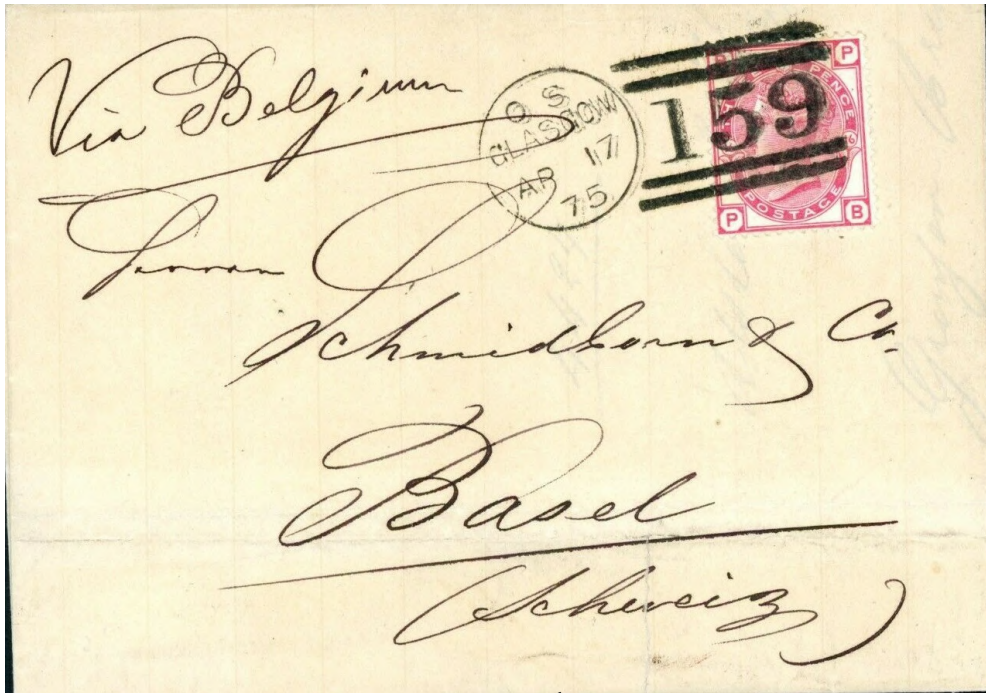 Via Belgium
O S
GLASGOW
AP 17
75
159
P
PENCE
6
POSTAGE
P B
Schmidborn & Co.
Basel
(Schweiz)